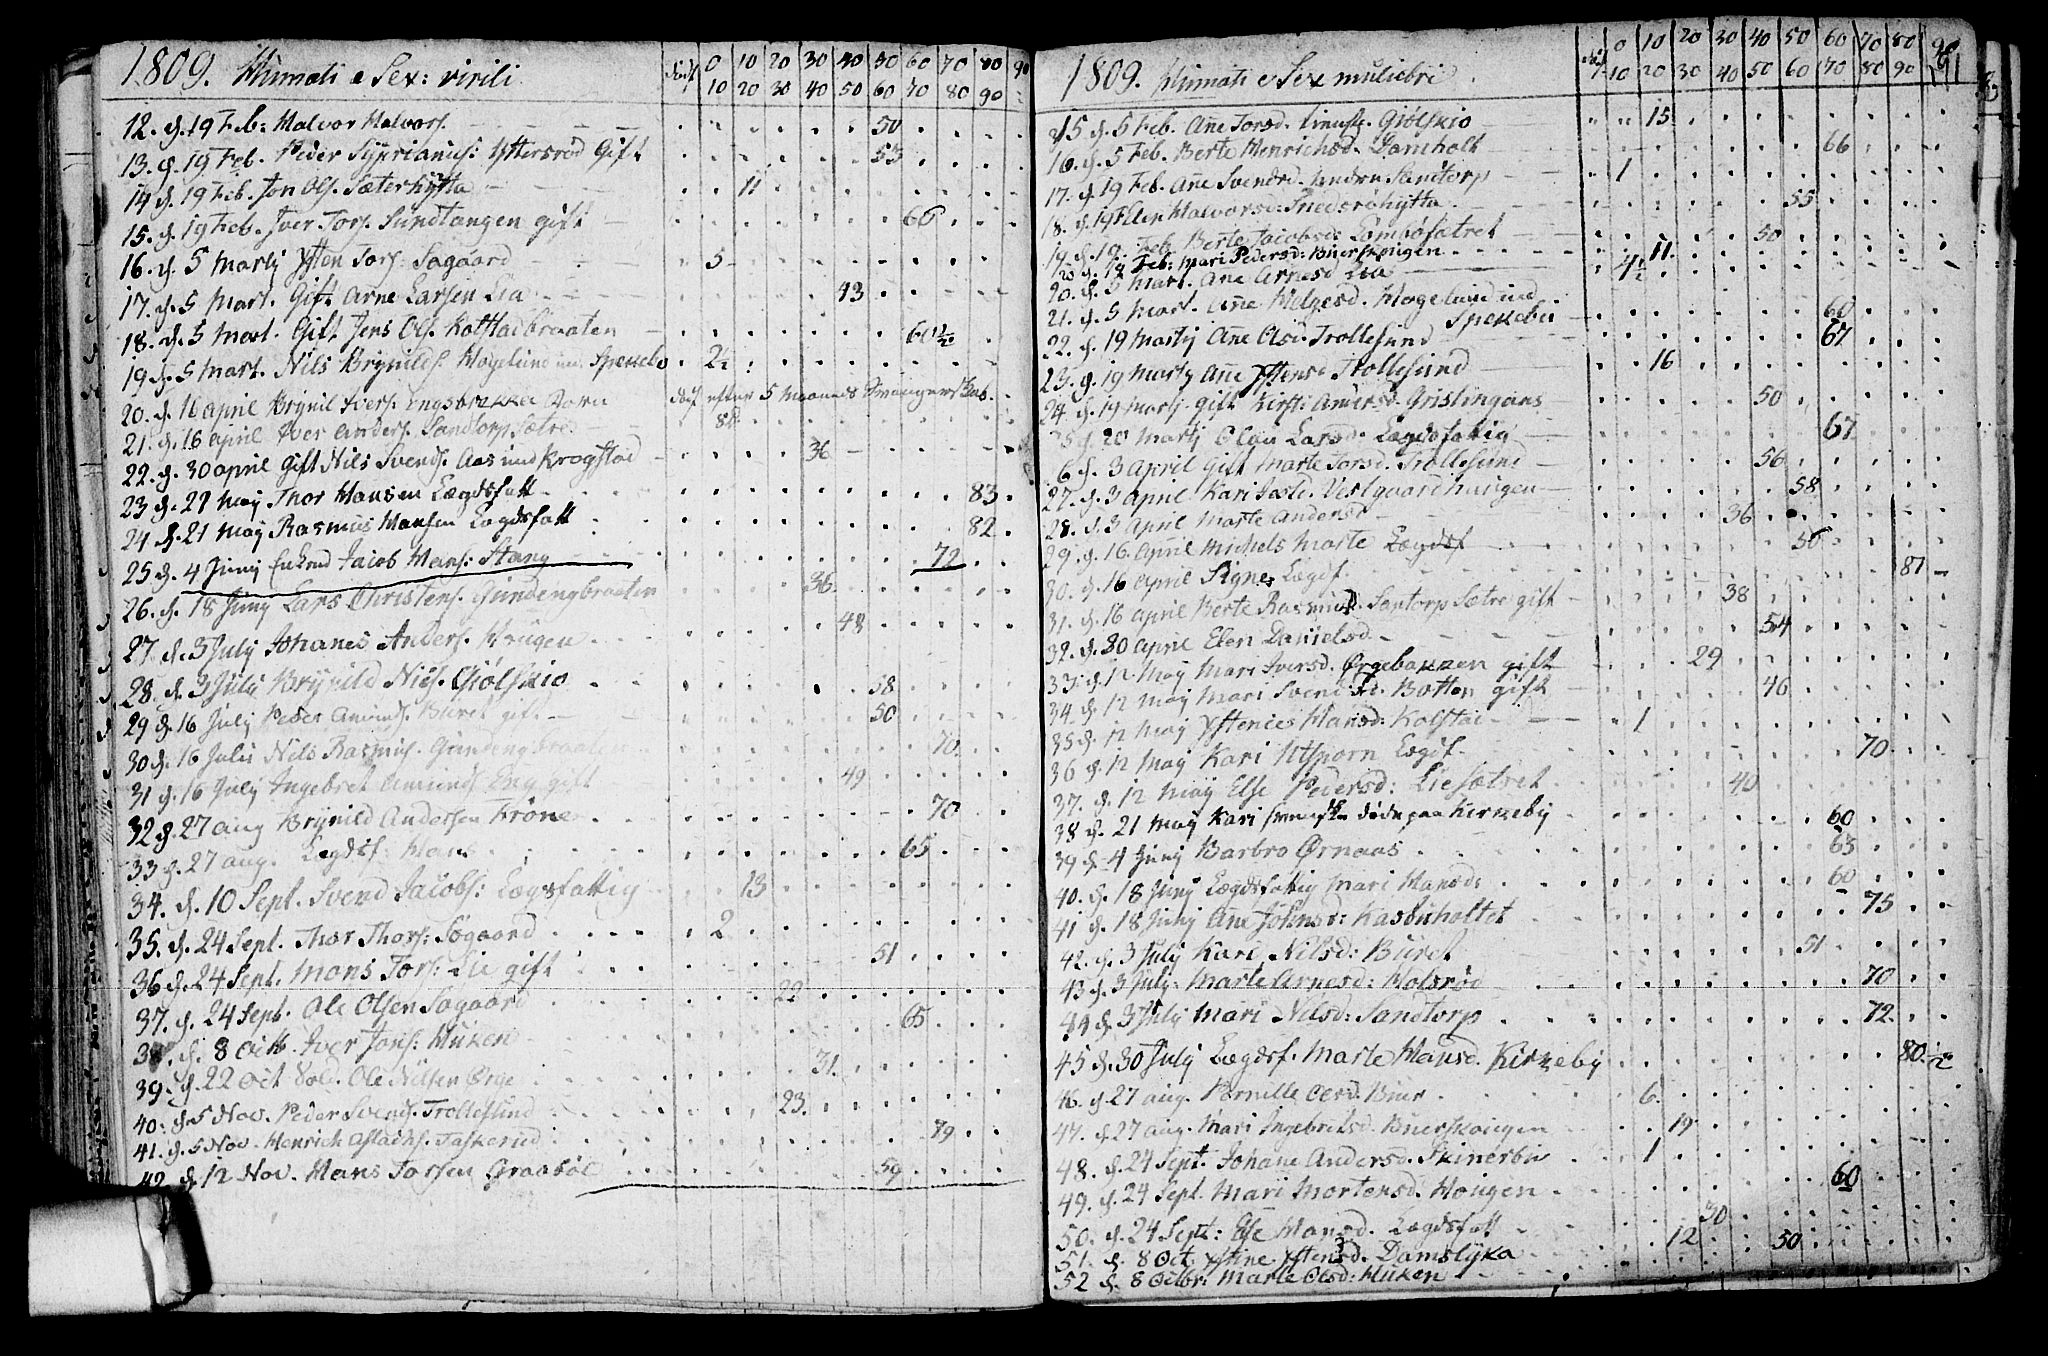 1809. Humati e Sex: virili
dødf 0 10 20 30 40 50 60 70 80 90
10 20 30 40 50 60 70 80 90
12. d. 19 Feb: Halvor Halvors. 50
13. d. 19 Feb. Peder Syprianus: Yttersrød Gift 53
14 d. 19 Feb. Jon Ols. Sæterhytta 11
15. d. 19 Feb. Iver Tors. Sundtangen gift 66
16. d. 5 Martj Ysten Tors: Sogaard 5
17. d. 5 Mart. Gift Arne Larsen Lia 43
18. d. 5 Mart. Gift Jens Ols. Kattstadbraaten 60 1/2
19 d. 5 Mart. Nils Brynilds. Hogelund ind Spekebo 2 1/2
20. d. 16 april Brynil Ivers. Engsbrække Børn død efter 5 Maaneds Svangerskab.
21. d. 16 april Iver Anders. Sandtorp Sætre 8
22. d. 30 april Gift Nils Svends. Aas ind Krogstad 36
23 d. 21 May Thor Hansen Lægdsfatt. 83
24 d. 21 May Rasmus Hansen Lægdsfatt 82
25 d. 4 Junij Enkmd Jacob Hans: Stang 72
26. d. 18 Junij Lars Christens. Gundengbraaten 36
27. d. 3 July Johanes Anders. Haugen 48
28. d. 3 July Brynild Niels. Giølskio 58
29 d. 16 July Peder Amunds. Buret gift 50
30 d. 16 Julii Nils Rasmus. Gundengbraaten 70
31 d. 16 July Ingebret Amunds. Eng gift 49
32 d. 27 aug Brynild Andersen Krøner 70
33 d. 27 aug. Lægdsf: Hans 65
34. d. 10 Sept. Svend Jacobs: Lægsfattig 13
35. d. 24 Sept. Thor Thors: Sogaard 2
36 d. 24 Sept. Mons Tors: Lie gift 51
37. d. 24 Sept. Ole Olsen Sogaard 22
38. d. 8 Octb. Iver Jons: Huken 65
39. d. 22 Oct Sold. Ole Nilsen Ørge 31
40. d. 5 Nov. Peder Svends. Trollesund 23
41. d. 5 Nov. Henrich Aslachs. Taskerud 79
42. d. 12 Nov. Hans Torsen Graabøl 59
1809. Humati e Sex muliebri
0 10 20 30 40 50 60 70 80 90
10 20 30 40 50 60 70 80 90
15 d. 5 Feb. Ane Torsd. Giølskio 15
16. d. 5 Feb. Berte Henrichsd. Damholt 66
17. d. 19 Feb. Ane Svendsd. Sandtorp 1
18. d. 19 Feb Halvorsd. Snedsrøhytta 55
19 d. 19. Feb Berte Jacobsd. Lombøsætret 50
20 d. 19 Feb: Mari Pedersd: Buerskougen 11
20. d. 5 Mart. Ane Arnesd Lia 4 1/2
21. d. 5 Mart. Ane Helgesd. Hogelund ind Spekebu 60
22. d. 19 Martj Ane Olsd. Trollesund 67
23. d. 19 Martj Ane Ystensd Trollesund 16
24. d. 19 Martj. Gift Kirsti Andersd. Gristingaas 50
25 d. 20 Martj Olau Larsd. Lægdsfattig 67
6 d. 3 April Gift Marte Torsd. Trollesund 56
27. d. 3 April Kari Vestgaardhaugen 58
28. d. 3 April Marte Andersd 36
29. d. 16. April Michels Marte Lægdsf 50
30. d. 16 April Signe Lægdf. 87
31. d. 16 April Berte Rasmusd. Santorp Sætre gift 38
32. d. 30 April Elen Danielsd 54
33. d. 12 May Mari Iversd. Ørgebakken gift 29
34. d. 12 May Mari Svendsd. Botten gift 46
35 d. 12 May Hansd: Kolstad 1
36 d. 12 May Kari Utsporn Legdf. 70
37. d. 12 May Else Pedersd: Liesætret 40
38 d. 21 May Kari Svenske døde paa Kirkeby 60
39 d. 4 Junij Barbro Ørnaas 63
40. d. 18 Junij Lægdsfattig Mari Hansd: 60
41 d. 18 Junij Ane Johnsd: Kasbuholtet 75
42. d. 3 July Kari Nilsd: Buret 51
43 d. 3 July: Marte Arnesd: Holsrød 70
44 d. 3 July Mari Nelsd: Sandtorp 72
45 d. 30 July Lægdsf. Marte Hansd. Kirkeby 80. 1/2
46. d 27 aug. Pernille Olesd. Buer 6
47. d 27 aug. Mari Ingebretsd. Buerskougen 19
48. d. 24 Sept. Johane Andersd. Skinerbu 1
49. d. 24 Sept. Mari Mortensd. Hougen 60
50. d. 24 Sept: Else Hansd. Lægdsfatt 30
51. d. 8 Oct. Ystine Ystensd. Damslyka 12
52 d. 8 Octbr: Marte Olsd: Huken 50